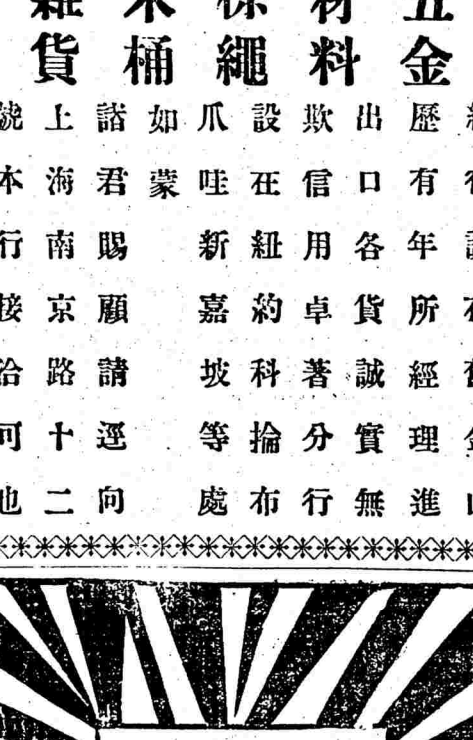 五金
材料
棕繩
木桶
雜貨
歷有年所經理進
出口各貨誠實無
欺信用卓著分行
設在紐約科掄布
爪哇新嘉坡等處
如蒙
諸君賜顧請逕向
上海南京路十二
號本行接洽可也